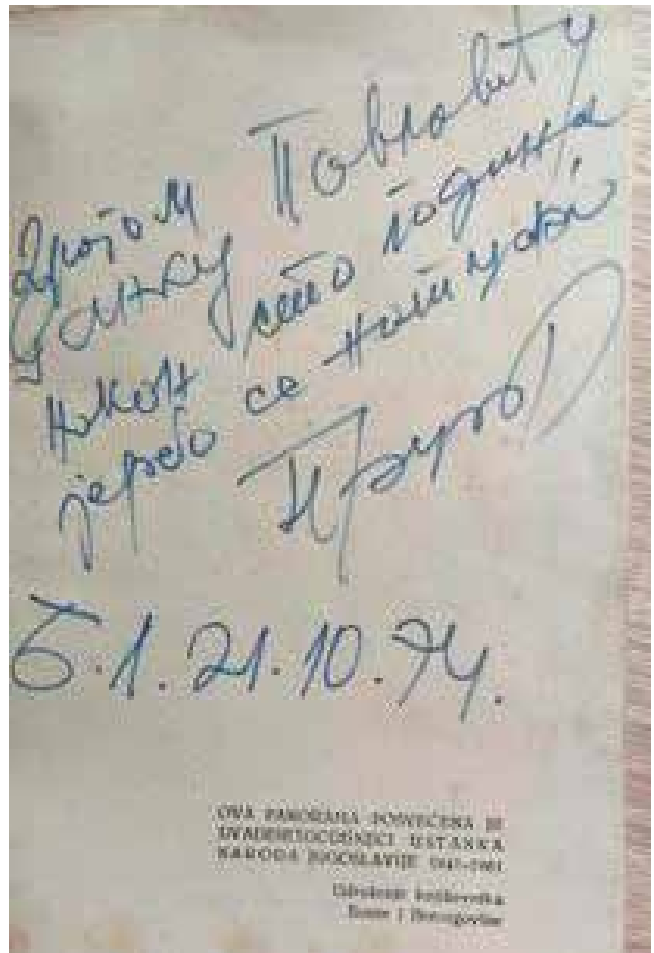 Драгом Павловићу
Мику сто година
након
јербо се
Б.Л. 21.10.74.
OVA PANORAMA POSVEĆENA JE
DVADESETOGODIŠNJICI USTANKA
NARODA JUGOSLAVIJE 1941-1961
Udruženje književnika
Bosne i Hercegovine